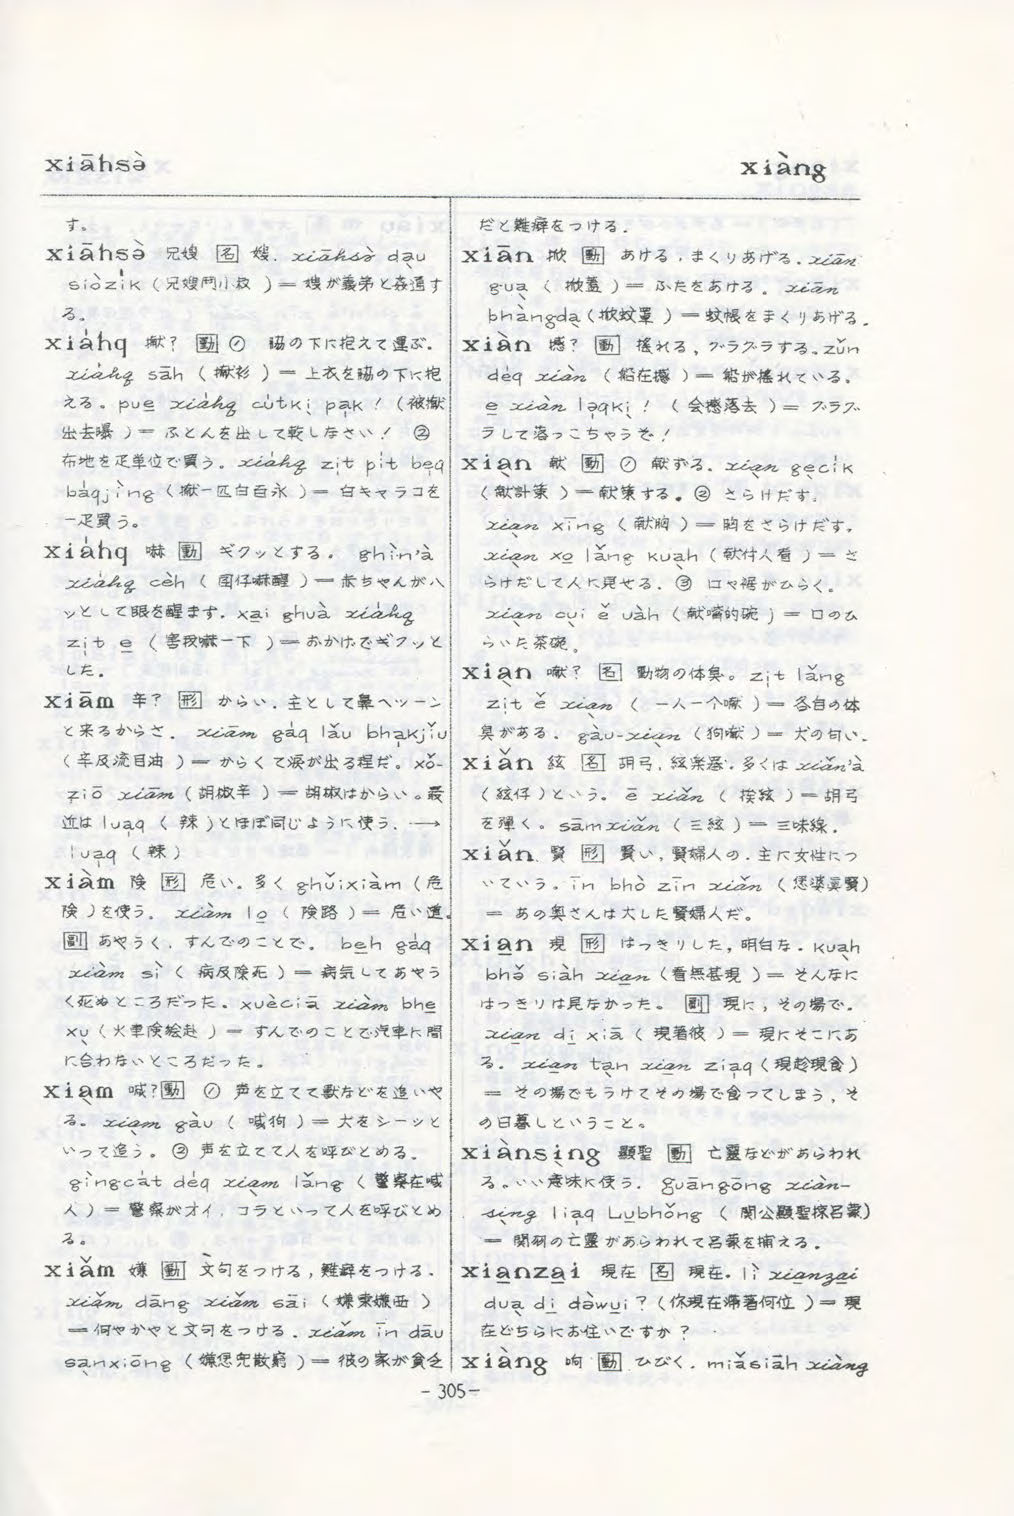 xiāhsə̀
xiàng
す。
xiāhsə̀ 兄嫂 名 嫂. xiāhsə̀ dạu
siòzı̍k (兄嫂鬥小叔) = 嫂が義弟と姦通す
る。
xia̍hq 揿? 動 ① 脇の下に抱えて運ぶ.
xia̍hq sāh ( 揿衫 ) = 上衣を脇の下に抱
える。pue xia̍hq cu̍tkị pa̍k ! (被揿
出去曝 ) = ふとんを出して乾しなさい! ②
布地を疋単位で買う。xia̍hq zịt pı̍t bẹq
ba̍qjı̀ng ( 揿一匹白百永 ) = 白キャラコを
一疋買う。
xia̍hq 嚇 動 ギクッとする. ghìn'à
xia̍hq cèh ( 囝仔嚇醒 ) = 赤ちゃんがハ
ッとして眼を醒ます. xại ghuà xia̍hq
zịt e ( 害我嚇一下 ) = おかげでギクッと
した.
xiām 辛? 形 からい. 主として鼻へツーン
と来るからさ. xiām ga̍q lǎu bhạkjı̌u
( 辛及流目油 ) = からくて涙が出る程だ. xǒ-
ziō xiām ( 胡椒辛 ) = 胡椒はからい。最
近は luạq ( 辣 )とほぼ同じように使う. ⟶
luạq ( 辣 )
xiàm 険 形 危い. 多く ghǔixiàm (危
険 )を使う. xiàm lo ( 険路 ) = 危い道.
副 あやうく. すんでのことで. beh ga̍q
xiàm sì ( 病及険死 ) = 病気してあやう
く死ぬところだった. xuèciā xiàm bhe
xụ (火車険絵赴 ) = すんでのことで汽車に間
に合わないところだった。
xiạm 喊? 動 ① 声を立てて獣などを追いや
る. xiạm gàu ( 喊狗 ) = 犬をシーッと
いって追う. ② 声を立てて人を呼びとめる.
gìngca̍t de̍q xiạm lǎng ( 警察在喊
人) = 警察がオイ, コラといって人を呼びとめ
る。
xiǎm 嫌 動 文句をつける, 難癖をつける.
xiǎm dāng xiǎm sāi ( 嫌東嫌西 )
= 何やかやと文句をつける. xiǎm īn dāu
sạnxiōng ( 嫌恁兜散窮) = 彼の家が貧乏
だと難癖をつける.
xiān 掀 動 あける, まくりあげる. xiān
guạ ( 掀蓋 ) = ふたをあける. xiān
bhàngdạ (掀蚊罩 ) = 蚊帳をまくりあげる.
xiàn 撼? 動 搖れる, グラグラする. zǔn
de̍q xiàn ( 船在撼 ) = 船が搖れている。
e xiàn lạqkị ! ( 会撼落去 ) = グラグ
ラして落っこちゃうぞ!
xiạn 献 動 ① 献ずる. xiạn gẹcı̍k
( 献計策 ) = 献策する. ② さらけだす.
xiạn xīng ( 献胸 ) = 胸をさらけだす.
xiạn xo lǎng kuạh ( 献付人看 ) = さ
らけだして人に見せる. ③ 口や裾がひらく.
xiạn cụi ě uàh ( 献嘴的碗 ) = 口のひ
らいた茶碗.
xiạn 名 動物の体臭。zịt lǎng
zịt ě xiạn ( 一人一个 ) = 各自の体
臭がある. gàu-xiạn ( 狗 ) = 犬の匂い.
xiǎn 絃 名 胡弓, 絃楽器. 多くは xiǎn'à
( 絃仔 ) という. ē xiǎn ( 挨絃 ) = 胡弓
を彈く。sāmxiǎn ( 三絃 ) = 三味線.
xiǎn 賢 形 賢い, 賢婦人の. 主に女性につ
いていう. īn bhò zīn xiǎn ( 恁婆真賢)
= あの奥さんは大した賢婦人だ.
xian 現 形 はっきりした, 明白な. kuạh
bhə̌ siàh xian ( 看無甚現 ) = そんなに
はっきりは見なかった. 副 現に, その場で.
xian di xiā ( 現著彼 ) = 現にそこにあ
る. xian tạn xian ziạq ( 現趁現食)
= その場でもうけてその場で食ってしまう, そ
の日暮しということ。
xiànsịng 顯聖 動 亡霊などがあらわれ
る. いい意味に使う. guāngōng xiàn-
sịng liạq Lubhǒng ( 関公顯聖掠呂蒙)
= 関羽の亡霊があらわれて呂蒙を捕える.
xianzai 現在 名 現在. lì xianzai
duạ di də̀wui ? (你現在滞著何位 ) = 現
在どちらにお住いですか?
xiàng 响 動 ひびく. miǎsiàh xiàng
- 305 -